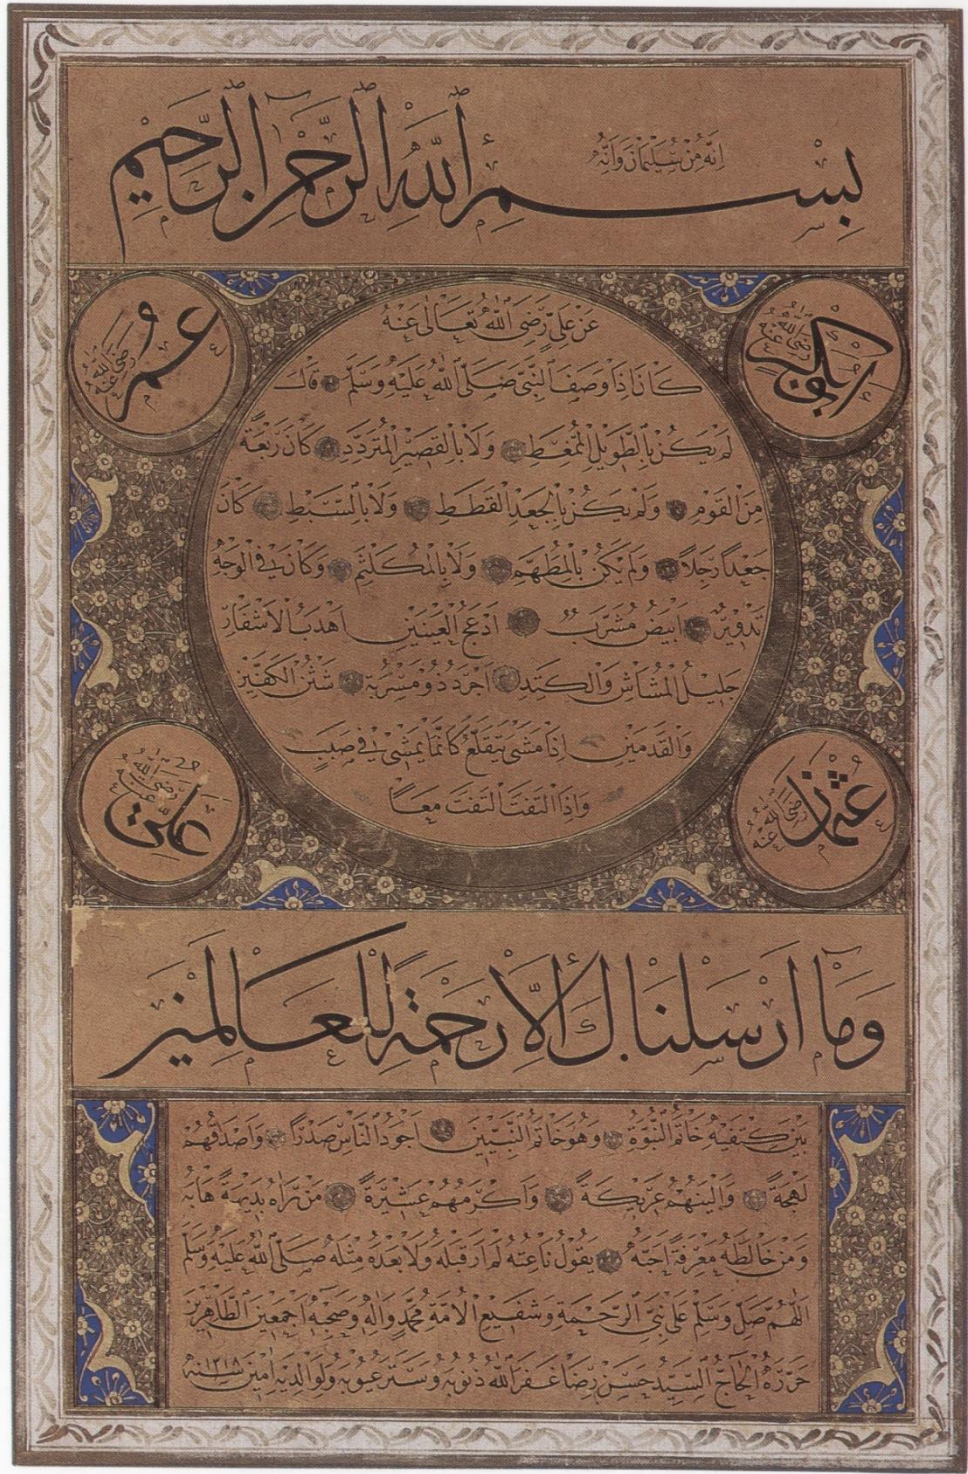 انه من سليمان وانه
بسم الله الرحمن الرحيم
ابوبكر رضى الله عنه
عمر رضى الله عنه
عن على رضى الله تعالى عنه
كان اذا وصف النبى صلى الله عليه وسلم قال
لم يكن بالطويل الممغط ولا بالقصير المتردد كان ربعة
من القوم ولم يكن بالجعد القطط ولا بالسبط كان
جعدا رجلا ولم يكن بالمطهم ولا بالمكلثم وكان فى الوجه
تدوير ابيض مشرب ادعج العينين اهدب الاشفار
جليل المشاش والكتد اجرد ذو مسربة شثن الكفين
والقدمين اذا مشى يتقلع كانما يمشى فى صبب
واذا التفت التفت معا
عثمان رضى الله عنه
على رضى الله عنه
وما ارسلناك الا رحمة للعالمين
بين كتفيه خاتم النبوة وهو خاتم النبيين اجود الناس صدرا واصدقهم
لهجة والينهم عريكة واكرمهم عشيرة من راه بديهة هابه
ومن خالطه معرفة احبه يقول ناعته لم ار قبله ولا بعده مثله صلى الله عليه وسلم
اللهم صل وسلم على نبى الرحمة وشفيع الامة محمد واله وصحبه اجمعين الطاهرين
حرره الحاج السيد حسن رضا غفر الله ذنوبه وستر عيوبه ولوالديه امين سنه